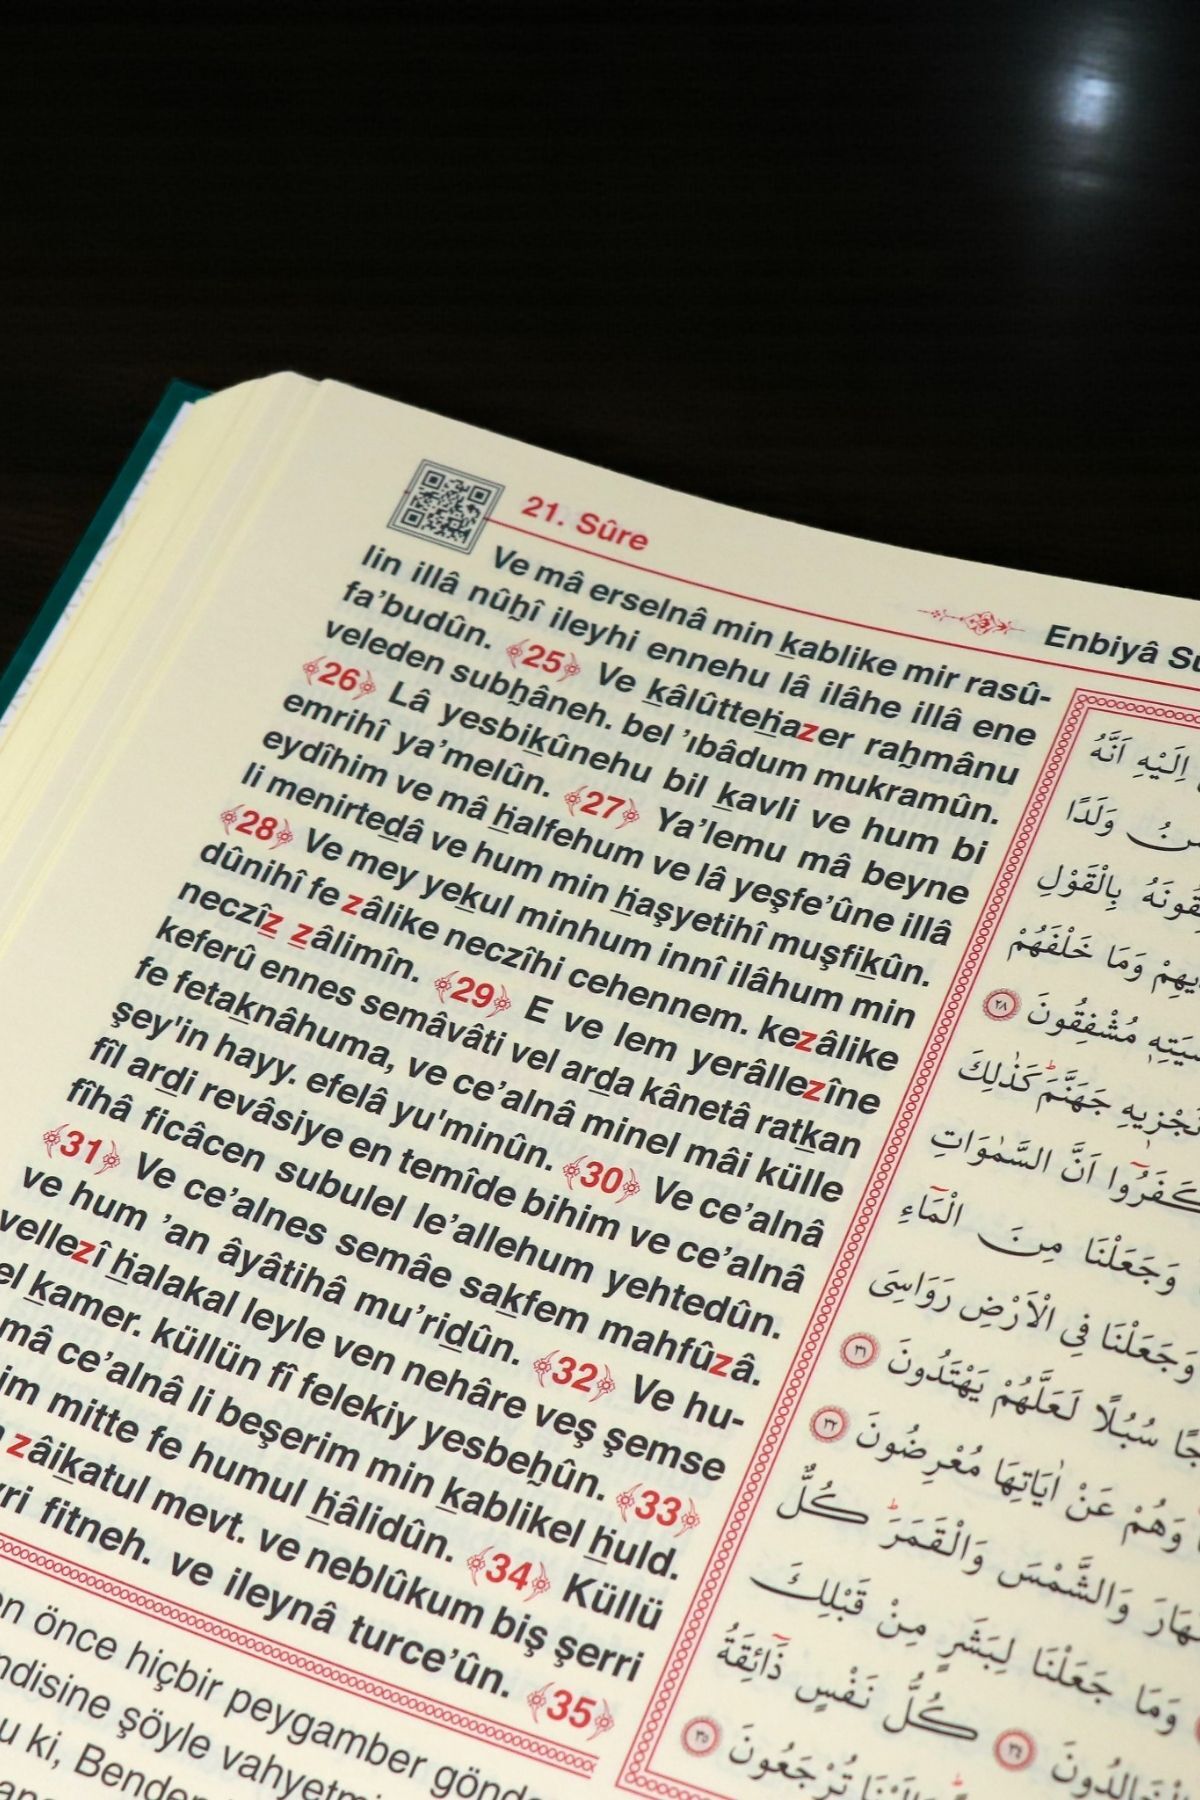 21. Sûre
Enbiyâ
Ve mâ erselnâ min ḵablike mir rasû-
lin illâ nûẖî ileyhi ennehu lâ ilâhe illâ ene
fa’budûn. ﴾25﴿ Ve ḵâlûtteẖazer raẖmânu
veleden subẖâneh. bel ’ıbâdum mukramûn.
﴾26﴿ Lâ yesbiḵûnehu bil ḵavli ve hum bi
emrihî ya’melûn. ﴾27﴿ Ya’lemu mâ beyne
eydîhim ve mâ ẖalfehum ve lâ yeşfe’ûne illâ
li menirteḏâ ve hum min ẖaşyetihî muşfiḵûn.
﴾28﴿ Ve mey yeḵul minhum innî ilâhum min
dûnihî fe zâlike neczîhi cehennem. kezâlike
neczîẕ ẕâlimîn. ﴾29﴿ E ve lem yerâllezîne
keferû ennes semâvâti vel arḏa kânetâ ratḵan
fe fetaḵnâhuma, ve ce’alnâ minel mâi külle
şey'in hayy. efelâ yu'minûn. ﴾30﴿ Ve ce’alnâ
fîl arḏi revâsiye en temîde bihim ve ce’alnâ
fîhâ ficâcen subulel le’allehum yehtedûn.
﴾31﴿ Ve ce’alnes semâe saḵfem mahfûzâ.
ve hum ’an âyâtihâ mu’riḏûn. ﴾32﴿ Ve hu-
vellezî ẖalakal leyle ven nehâre veş şemse
ḵamer. küllün fî felekiy yesbeẖûn. ﴾33﴿
mâ ce’alnâ li beşerim min ḵablikel ẖuld.
mitte fe humul ẖâlidûn. ﴾34﴿ Küllü
zâiḵatul mevt. ve neblûkum biş şerri
fitneh. ve ileynâ turce’ûn. ﴾35﴿
önce hiçbir peygamber
şöyle
ki, Benden
اِلَيْهِ اَنَّهُ
وَلَدًا
بِالْقَوْلِ
وَمَا خَلْفَهُمْ
مُشْفِقُونَ ٢٨
جَهَنَّمَ كَذٰلِكَ
كَفَرُوا اَنَّ السَّمٰوَاتِ
وَجَعَلْنَا مِنَ الْمَاءِ
وَجَعَلْنَا فِي الْاَرْضِ رَوَاسِيَ
سُبُلًا لَعَلَّهُمْ يَهْتَدُونَ ٣١
وَهُمْ عَنْ اٰيَاتِهَا مُعْرِضُونَ ٣٢
وَالشَّمْسَ وَالْقَمَرَ كُلٌّ
وَمَا جَعَلْنَا لِبَشَرٍ مِنْ قَبْلِكَ
٣٤ كُلُّ نَفْسٍ ذَائِقَةُ
تُرْجَعُونَ ٣٥